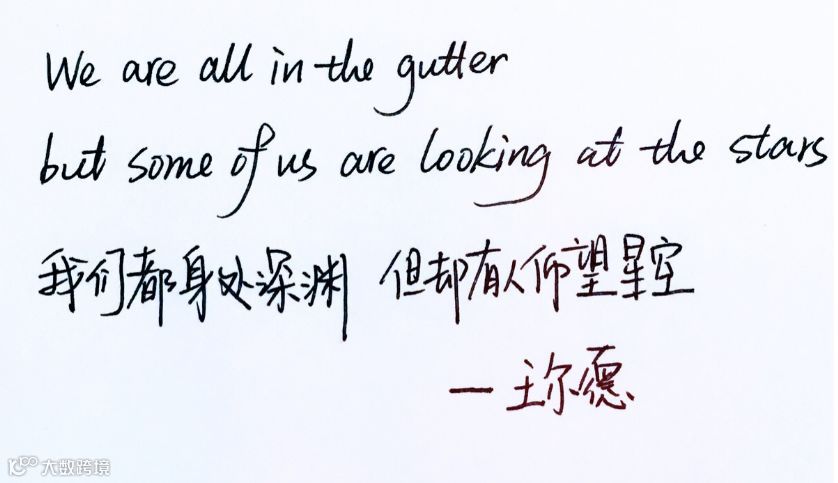 We are all in the gutter
but some of us are looking at the stars
我们都身处深渊 但却有人仰望星空
一王尔德
大数跨境